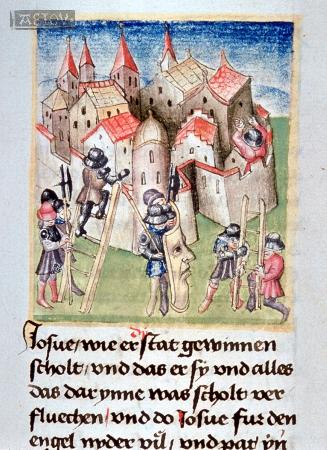 ASTOU
dy
Josue / wie er stat gewinnen
scholt / vnd das er sy vnd alles
das dar ynne was scholt ver
fluechen / vnd do Josue fur den
engel nyder vil / vnd pat yn